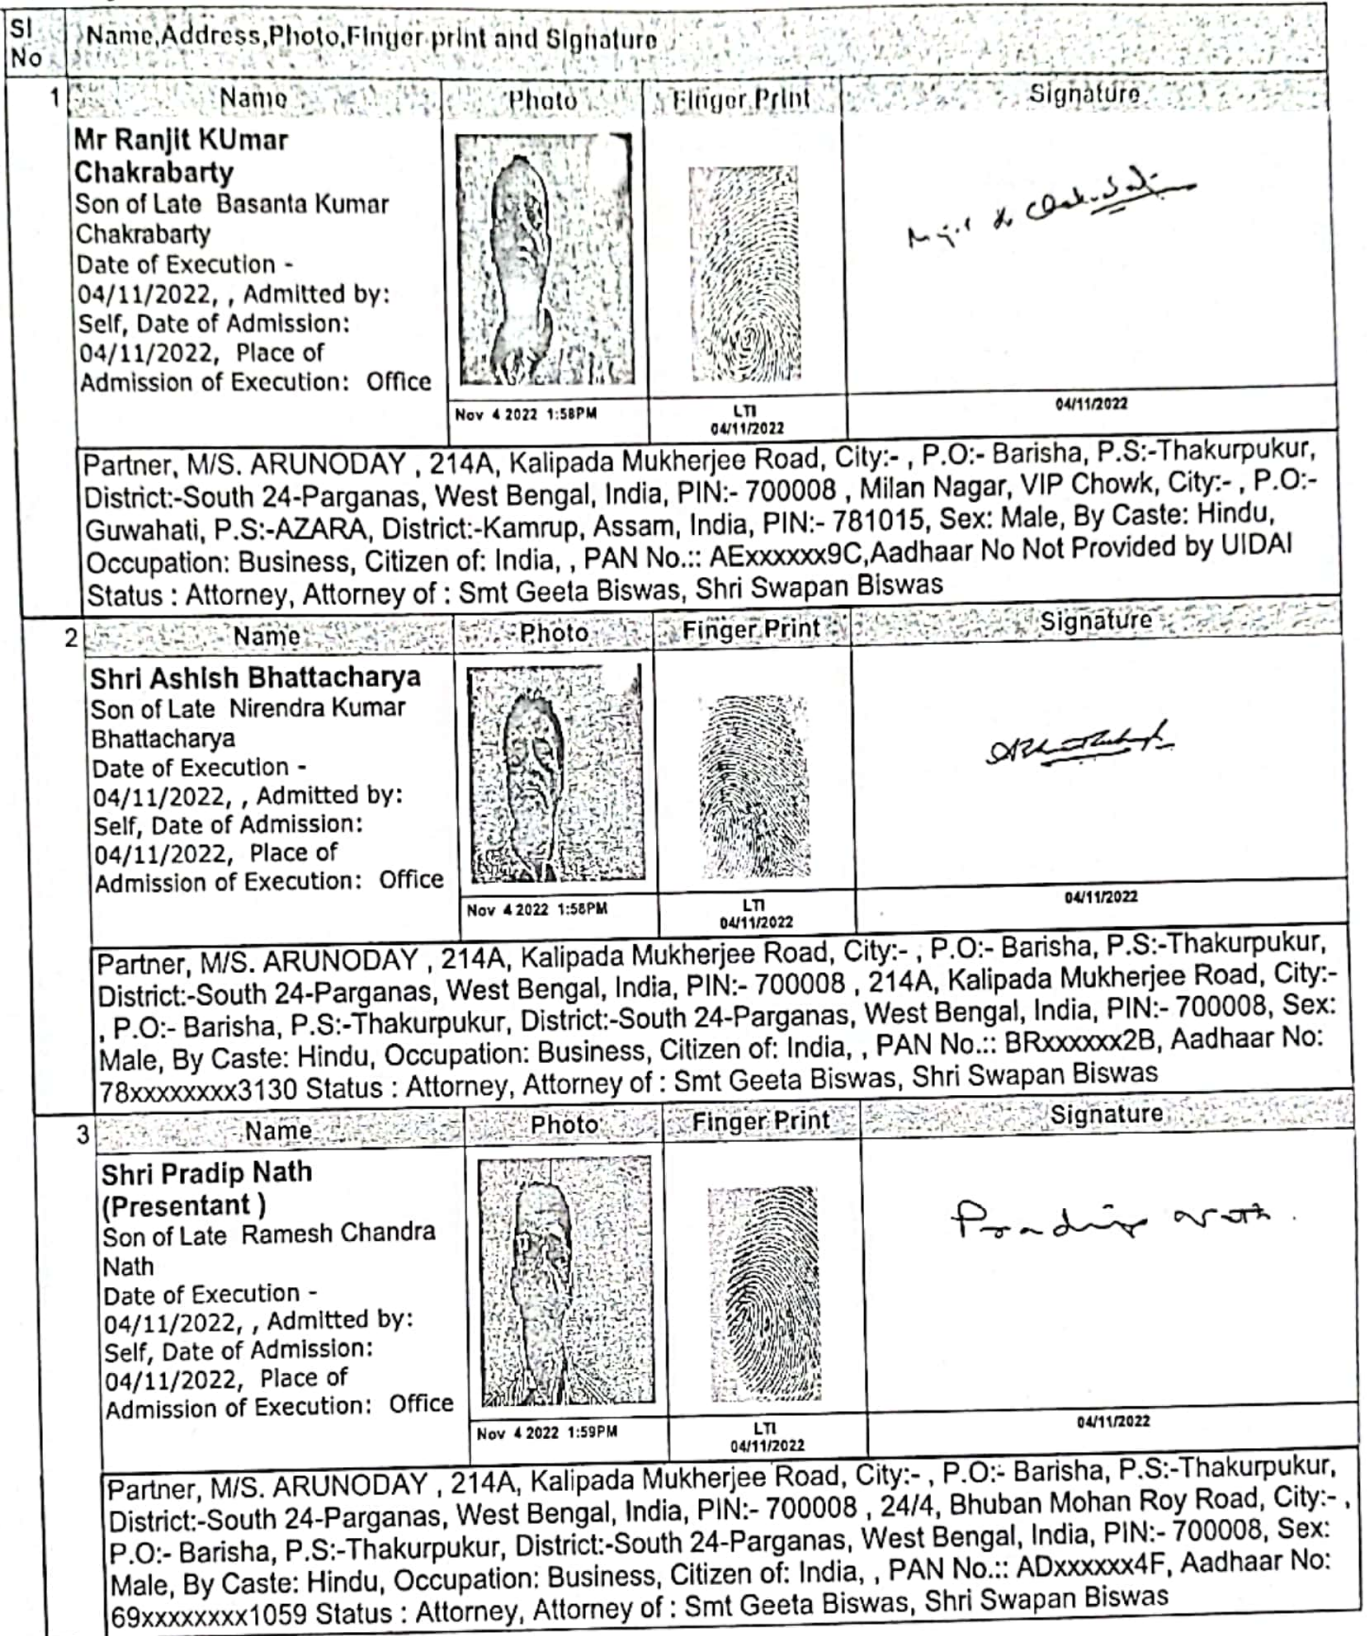 Sl No
Name,Address,Photo,Finger print and Signature
1
Name
Photo
Finger Print
Signature
Mr Ranjit KUmar
Chakrabarty
Son of Late Basanta Kumar
Chakrabarty
Date of Execution -
04/11/2022, , Admitted by:
Self, Date of Admission:
04/11/2022, Place of
Admission of Execution: Office
Nov 4 2022 1:58PM
LTI
04/11/2022
04/11/2022
Partner, M/S. ARUNODAY , 214A, Kalipada Mukherjee Road, City:- , P.O:- Barisha, P.S:-Thakurpukur,
District:-South 24-Parganas, West Bengal, India, PIN:- 700008 , Milan Nagar, VIP Chowk, City:- , P.O:-
Guwahati, P.S:-AZARA, District:-Kamrup, Assam, India, PIN:- 781015, Sex: Male, By Caste: Hindu,
Occupation: Business, Citizen of: India, , PAN No.:: AExxxxxx9C,Aadhaar No Not Provided by UIDAI
Status : Attorney, Attorney of : Smt Geeta Biswas, Shri Swapan Biswas
2
Name
Photo
Finger Print
Signature
Shri Ashish Bhattacharya
Son of Late Nirendra Kumar
Bhattacharya
Date of Execution -
04/11/2022, , Admitted by:
Self, Date of Admission:
04/11/2022, Place of
Admission of Execution: Office
Nov 4 2022 1:58PM
LTI
04/11/2022
04/11/2022
Partner, M/S. ARUNODAY , 214A, Kalipada Mukherjee Road, City:- , P.O:- Barisha, P.S:-Thakurpukur,
District:-South 24-Parganas, West Bengal, India, PIN:- 700008 , 214A, Kalipada Mukherjee Road, City:-
, P.O:- Barisha, P.S:-Thakurpukur, District:-South 24-Parganas, West Bengal, India, PIN:- 700008, Sex:
Male, By Caste: Hindu, Occupation: Business, Citizen of: India, , PAN No.:: BRxxxxxx2B, Aadhaar No:
78xxxxxxxx3130 Status : Attorney, Attorney of : Smt Geeta Biswas, Shri Swapan Biswas
3
Name
Photo
Finger Print
Signature
Shri Pradip Nath
(Presentant )
Son of Late Ramesh Chandra
Nath
Date of Execution -
04/11/2022, , Admitted by:
Self, Date of Admission:
04/11/2022, Place of
Admission of Execution: Office
Pradip Nath.
Nov 4 2022 1:59PM
LTI
04/11/2022
04/11/2022
Partner, M/S. ARUNODAY , 214A, Kalipada Mukherjee Road, City:- , P.O:- Barisha, P.S:-Thakurpukur,
District:-South 24-Parganas, West Bengal, India, PIN:- 700008 , 24/4, Bhuban Mohan Roy Road, City:- ,
P.O:- Barisha, P.S:-Thakurpukur, District:-South 24-Parganas, West Bengal, India, PIN:- 700008, Sex:
Male, By Caste: Hindu, Occupation: Business, Citizen of: India, , PAN No.:: ADxxxxxx4F, Aadhaar No:
69xxxxxxxx1059 Status : Attorney, Attorney of : Smt Geeta Biswas, Shri Swapan Biswas